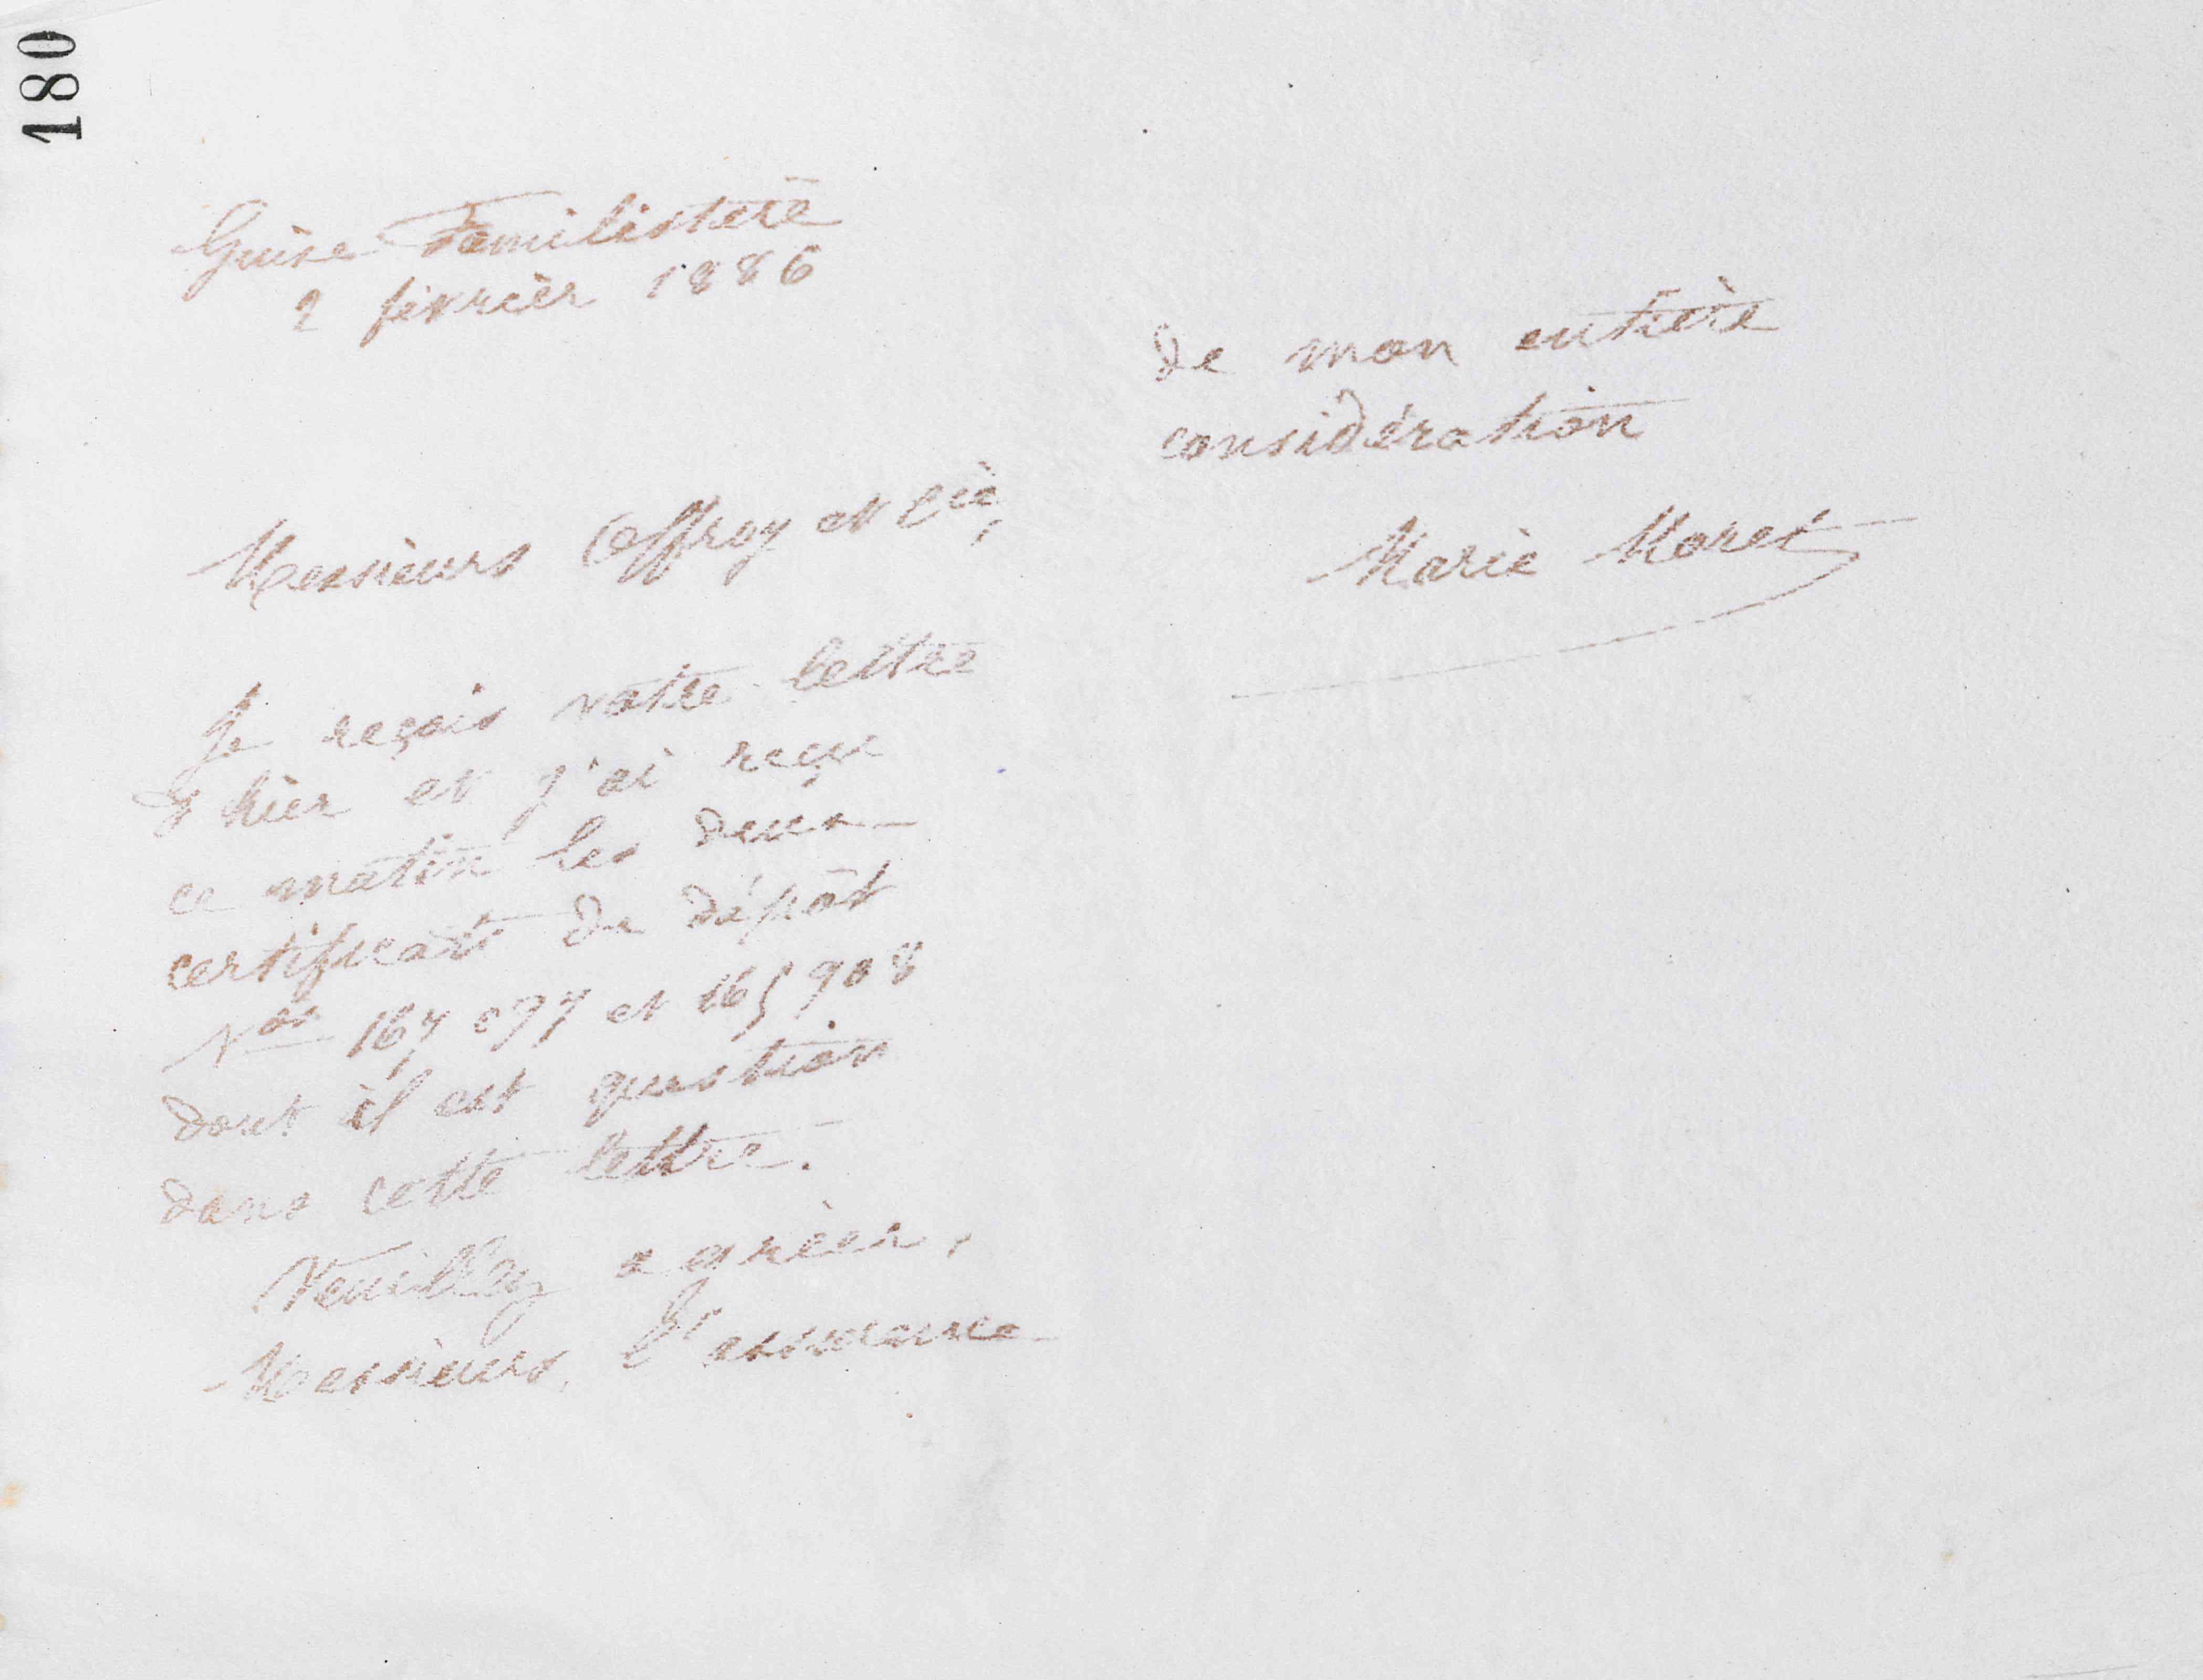 180
Guise Familistère
2 février 1886
Messieurs Coffroy et Cie,
Je reçois votre lettre
d'hier et j'ai reçu
ce matin les deux
certificats de dépôt
Nos 167 077 et 165 908
dont il est question
dans cette lettre.
Veuillez agréer,
Messieurs, l'assurance
de mon entière
considération
Marie Moret